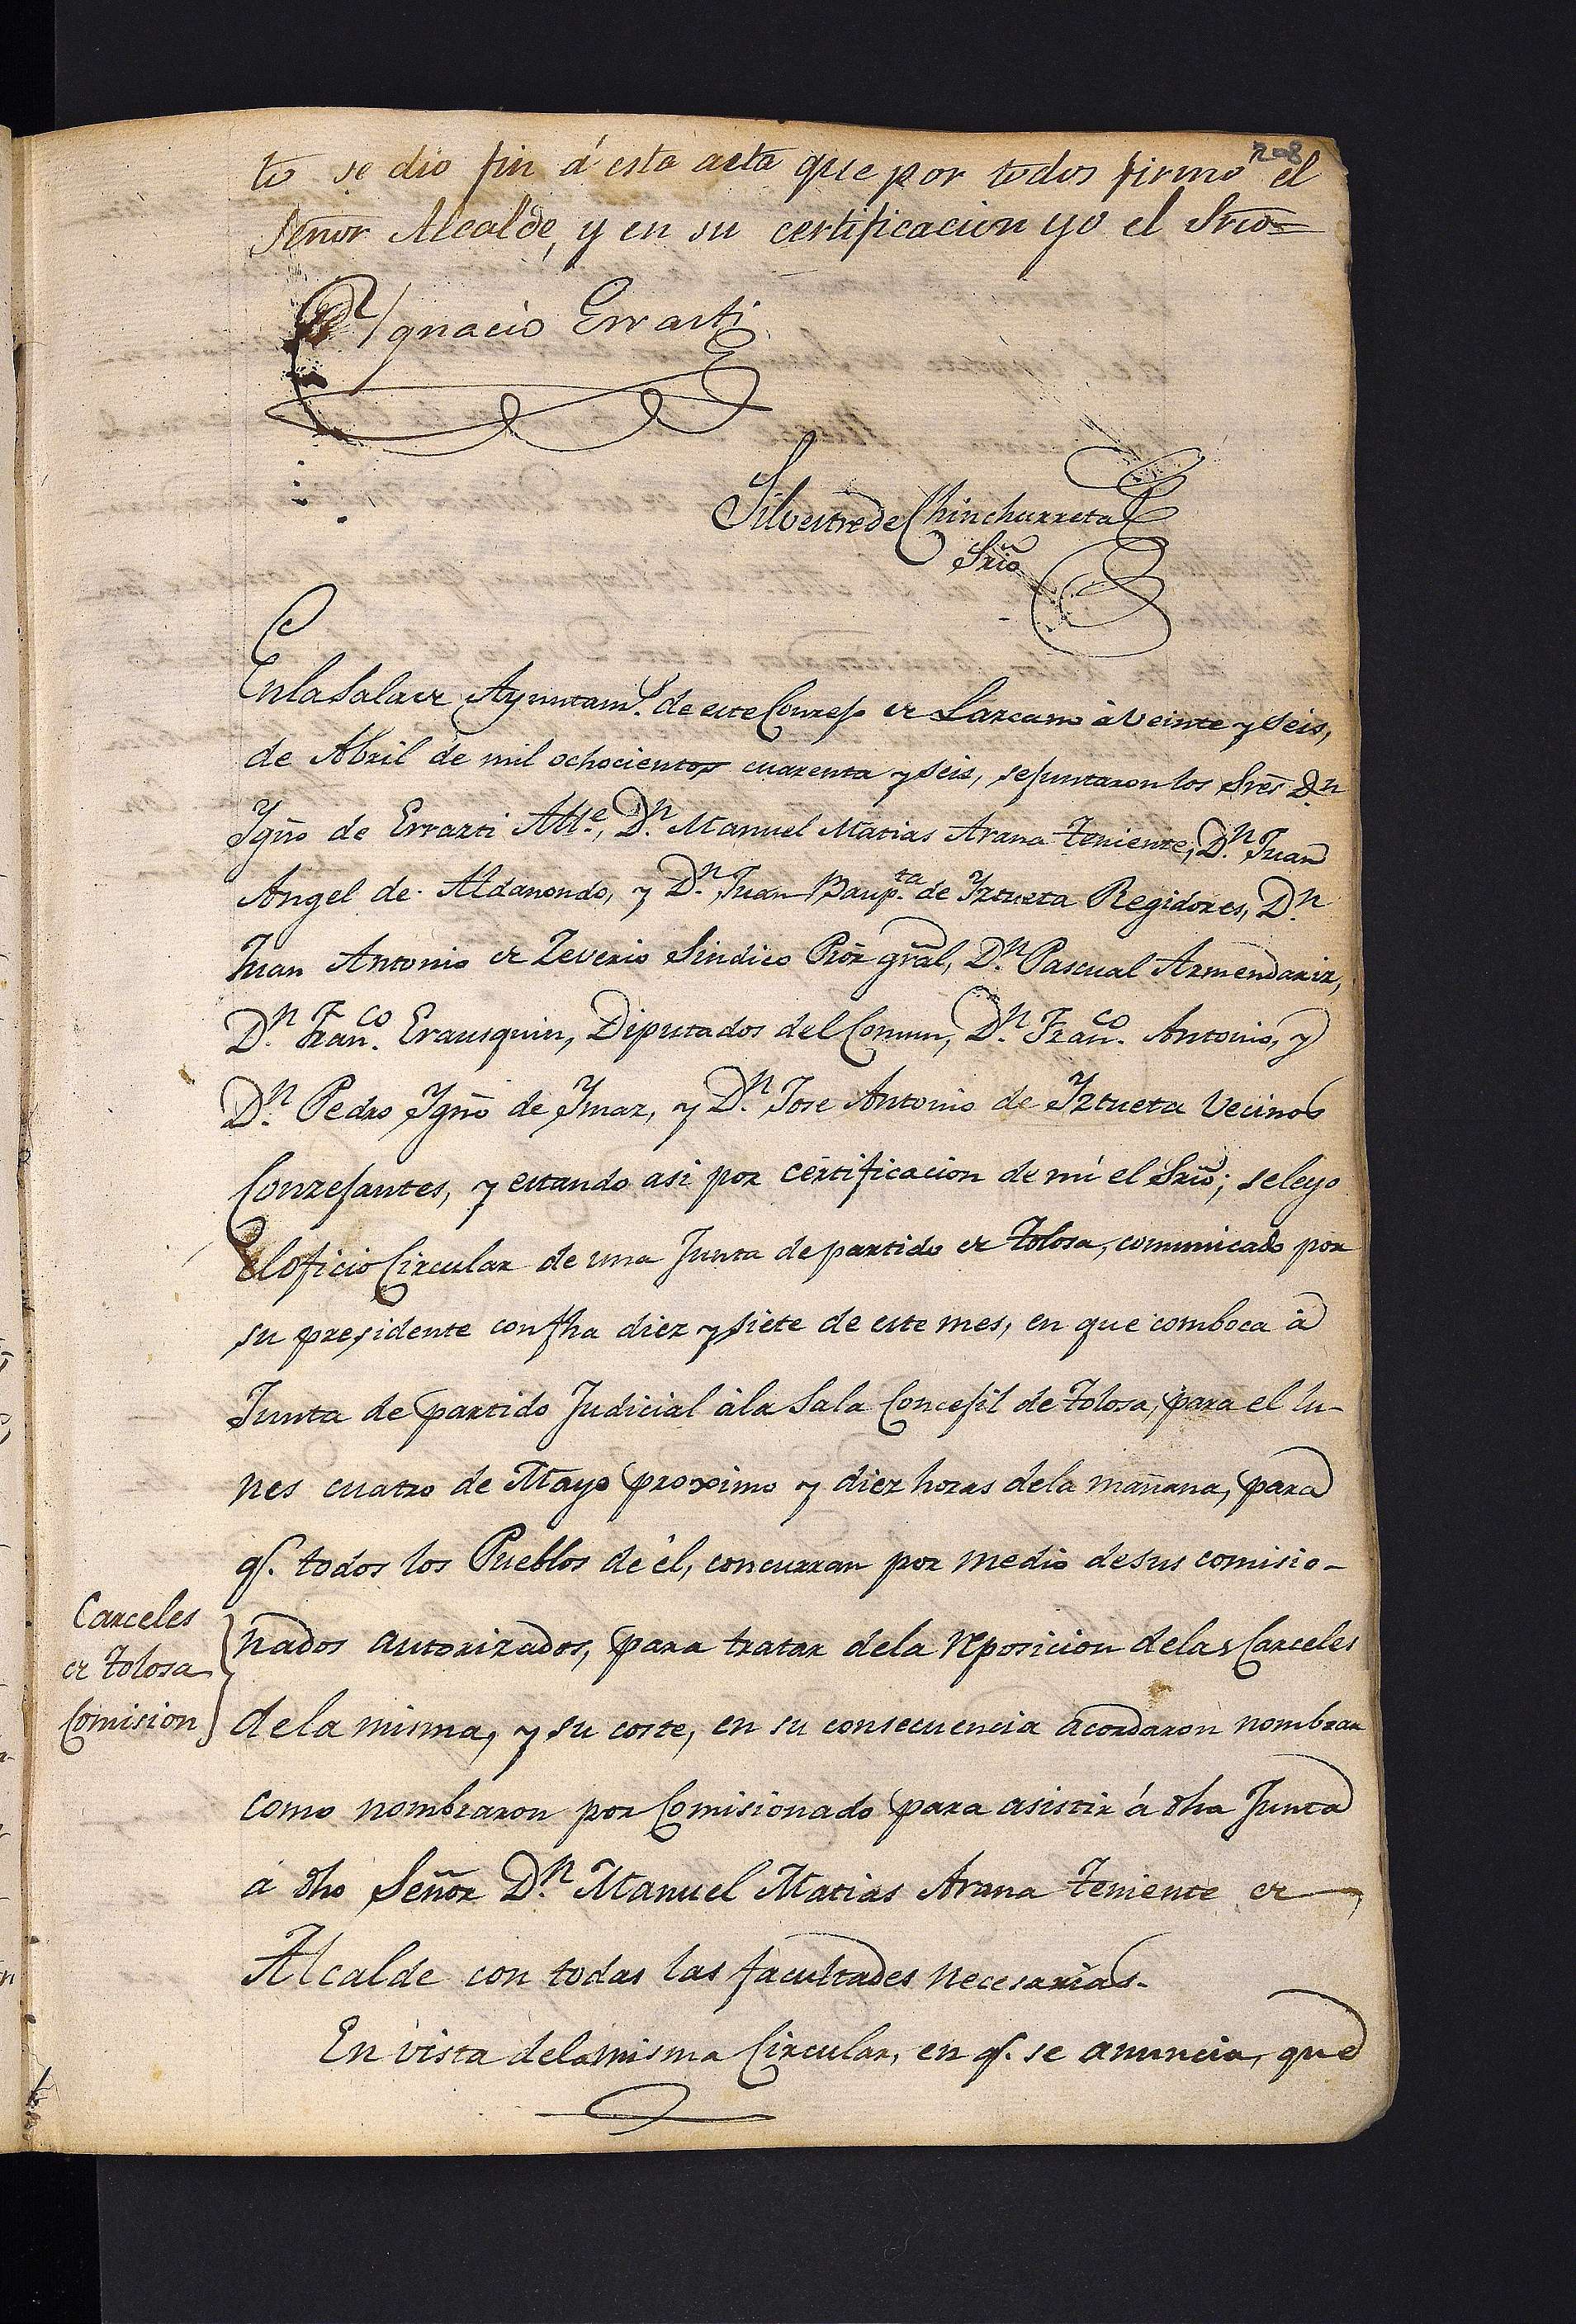 208
to se dio fin á esta acta que por todos firmó el
Señor Alcalde, y en su certificacion yo el Srio=
Ignacio Errasti
Silvestre de Chinchurreta
Srio
En la Sala de Ayuntamto. de este Concejo de Lazcano à veinte y seis,
de Abril de mil ochocientos cuarenta y seis, se juntaron los Sres Dn
Ygno de Errazti Alle., Dn. Manuel Matias Arana Teniente, Dn. Juan
Angel de Aldanondo, y Dn. Juan Baupta. de Yztueta Regidores, Dn.
Juan Antonio de Zeverio Sindico Pror gral, Dn. Pascual Armendariz,
Dn. Franco. Erausquin, Diputados del Comun, Dn. Franco. Antonio, y
Dn. Pedro Ygno de Ymaz, y Dn. Jose Antonio de Yztueta Vecinos
Concejantes, y estando asi por certificacion de mi el Srio; se leyo
El oficio Circular de una Junta de partido de Tolosa, comunicado por
su presidente con fha diez y siete de este mes, en que comboca à
Junta de partido Judicial à la Sala Concejil de Tolosa, para el lu-
nes cuatro de Mayo proximo y diez horas de la mañana, para
q. todos los Pueblos de él, concurran por medio de sus comisio-
Carceles
de Tolosa
Comision
nados autorizados, para tratar de la reposicion de las Carceles
de la misma, y su coste, en su consecuencia acordaron nombrar
como nombraron por Comisionado para asistir á dha Junta
á dho Señor Dn. Manuel Matias Arana Teniente de
Alcalde con todas las facultades necesarias.
En vista de la misma Circular, en q. se anuncia, que